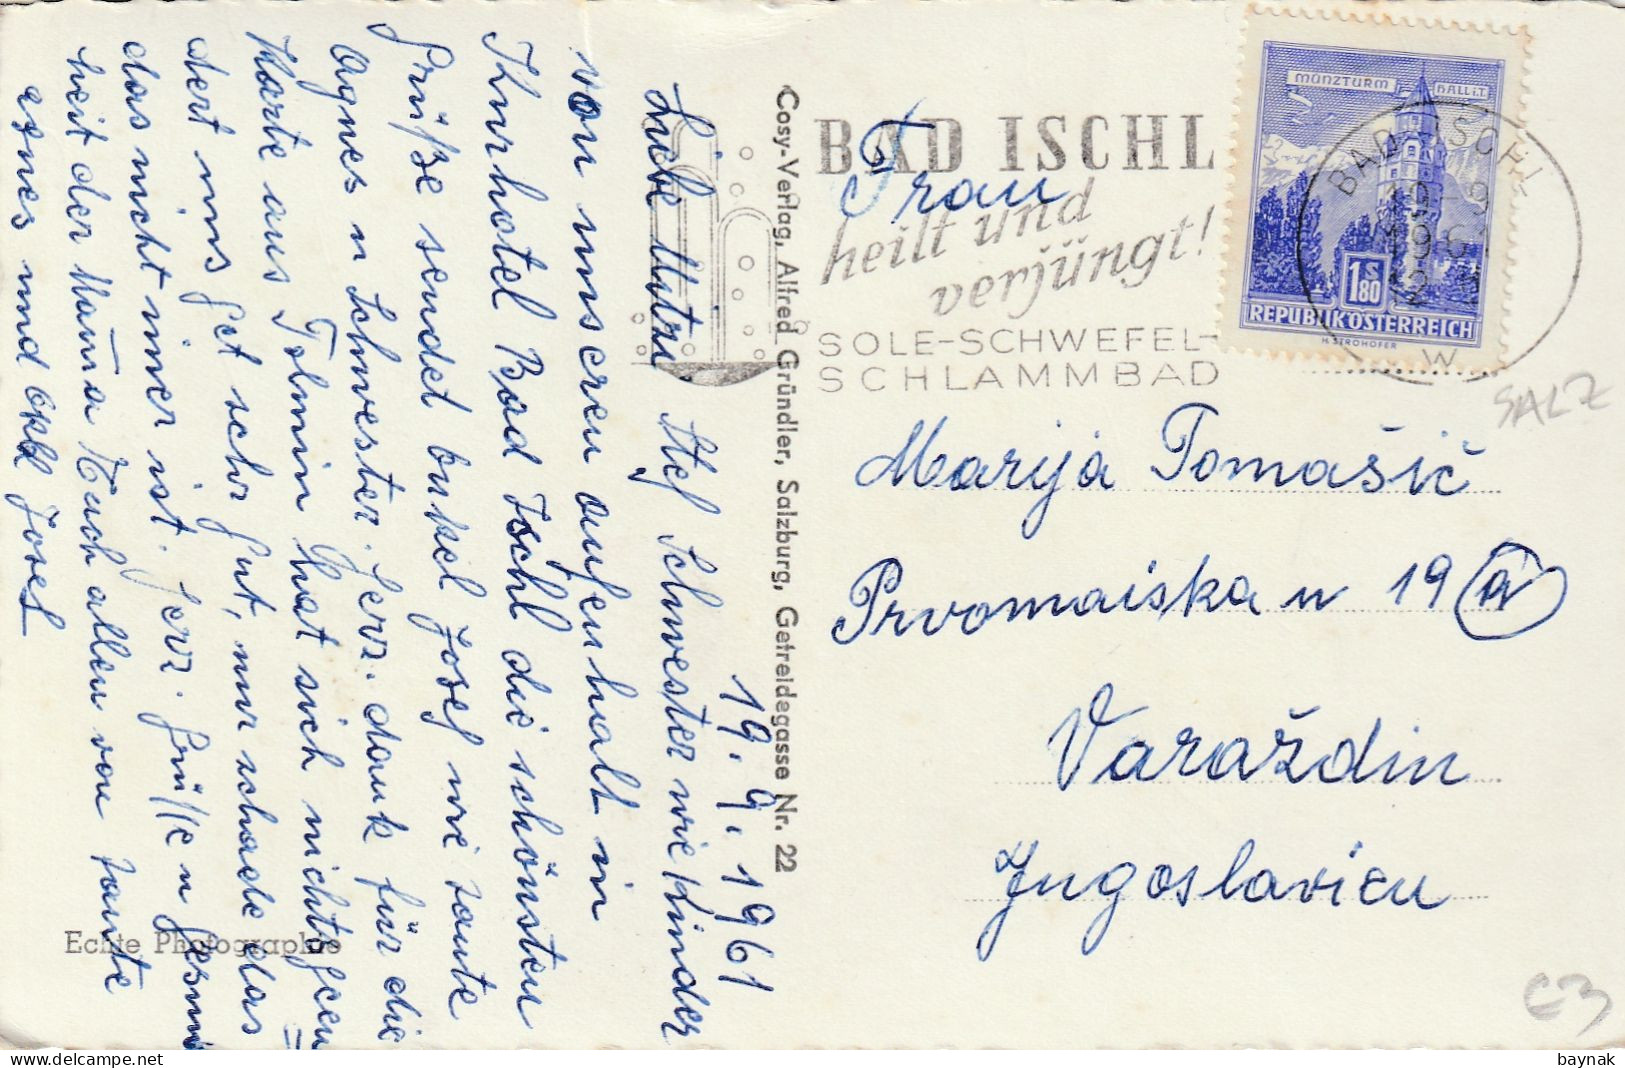 19. 9. 1961
Liebe Mutti, Stef Schwester wie Kinder
von unseren aufenhalt in
Kurhotel Bad Ischl die schönsten
Grüße sendet onkel Josef wie tante
Agnes u Schwester. Herz. dank für die
Karte aus Tolmin hat sich nichts geen=
dert uns get sehr gut, nur schade das
das nicht imer ist. Herz. Grüsse u gesun=
heit der Mama Euch allen von tante
agnes und Josef
Cosy-Verlag, Alfred Gründler, Salzburg, Getreidegasse Nr. 22
Echte Photographie
BAD ISCHL
heilt und
verjüngt!
SOLE-SCHWEFEL-
SCHLAMMBAD
MÜNZTURM HALL i.T.
1 S 80
REPUBLIK ÖSTERREICH
H. STROHOFER
BAD ISCHL
SALZ
Frau
Marija Tomašić
Prvomaiska u 19 a
Varaždin
Jugoslavien
€3
baynak